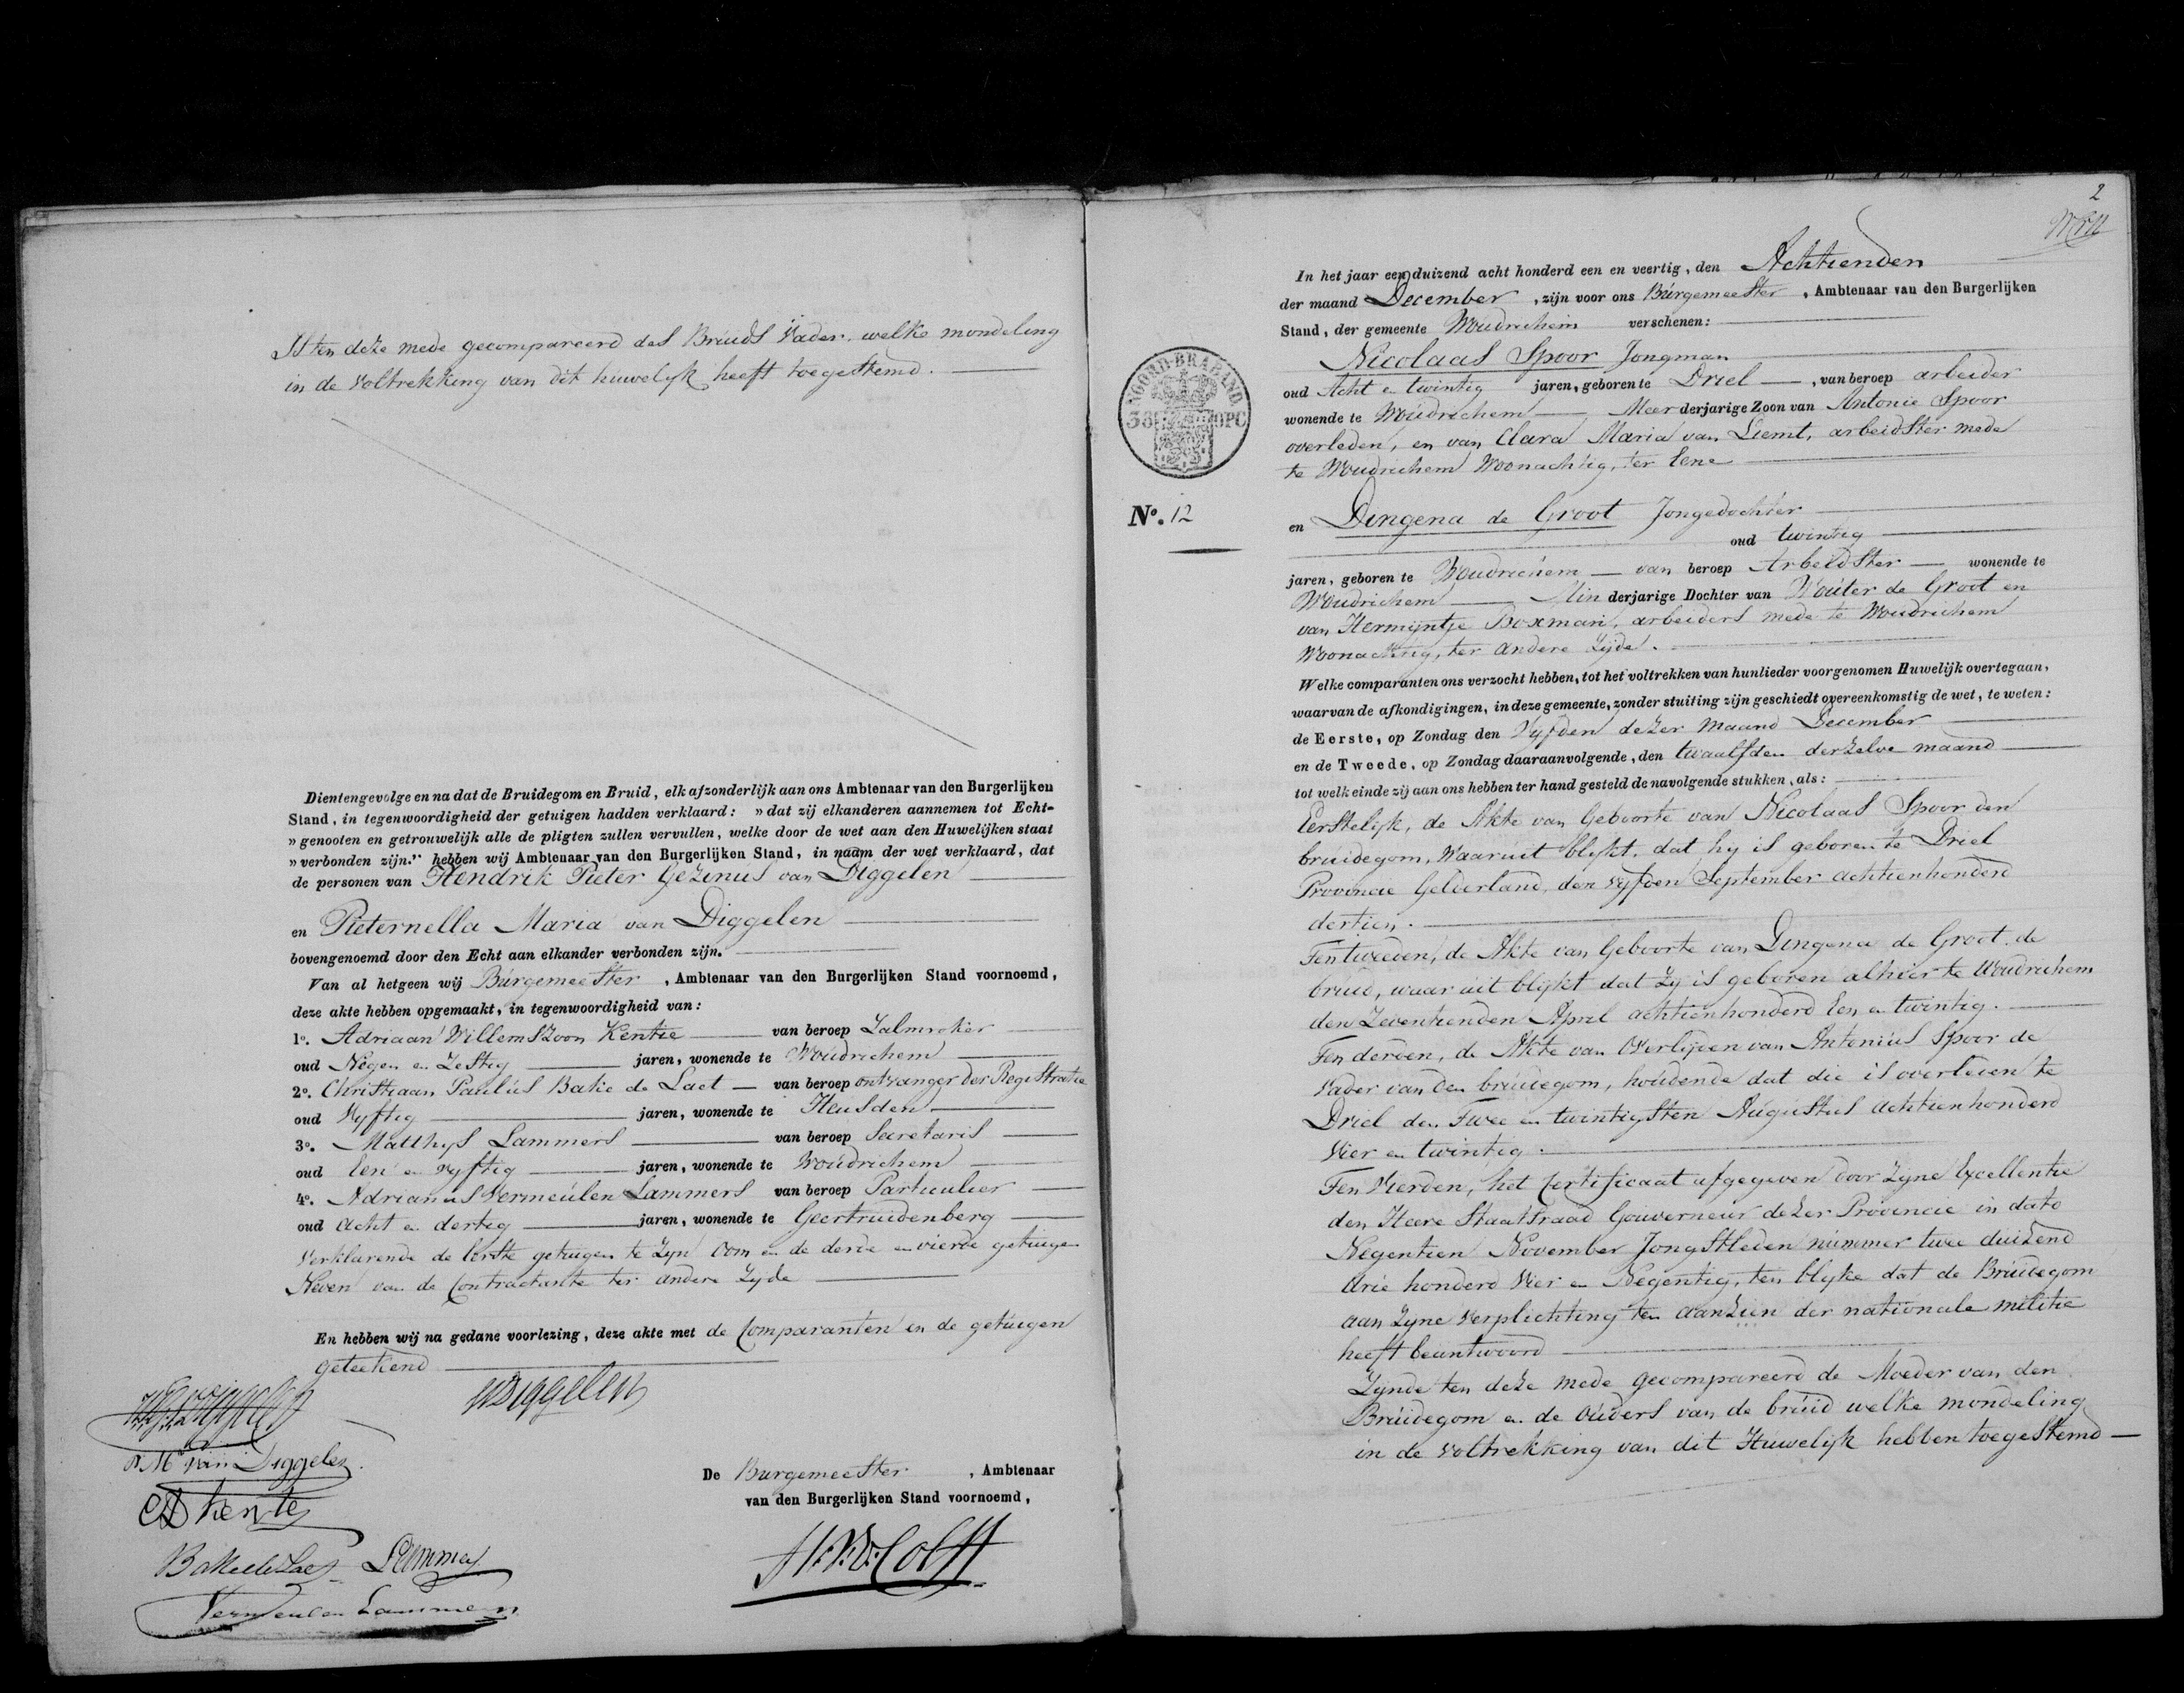 Is ten deze mede gecompareerd des Bruids Vader welke mondeling
in de voltrekking van dit huwelyk heeft toegestemd.
Dientengevolge en na dat de Bruidegom en Bruid, elk afzonderlijk aan ons Ambtenaar van den Burgerlijken
Stand, in tegenwoordigheid der getuigen hadden verklaard: » dat zij elkanderen aannemen tot Echt-
» genooten en getrouwelijk alle de pligten zullen vervullen, welke door de wet aan den Huwelijken staat
» verbonden zijn." hebben wij Ambtenaar van den Burgerlijken Stand, in naam der wet verklaard, dat
de personen van Hendrik Pieter Gezinus van Diggelen
en Pieternella Maria van Diggelen
bovengenoemd door den Echt aan elkander verbonden zijn.
Van al hetgeen wij Burgemeester, Ambtenaar van den Burgerlijken Stand voornoemd,
deze akte hebben opgemaakt, in tegenwoordigheid van:
1o. Adriaan Willemszoon Kentie van beroep Zalmroker
oud Negen en Zestig jaren, wonende te Woudrichem
2o. Christiaan Paulus Bake de Laet van beroep ontvanger der Registratie
oud Vyftig jaren, wonende te Heusden
3o. Matthys Lammers van beroep Secretaris
oud Een en vyftig jaren, wonende te Woudrichem
4o. Adrianus Vermeulen Lammers van beroep Particulier
oud Acht en dertig jaren, wonende te Geertruidenberg
Verklarende de Eerste getuigen te Zyn Oom en de derde en vierde getuigen
Neven van de Contractante ter andere Zyde
En hebben wij na gedane voorlezing, deze akte met de Comparanten en de getuigen
geteekend
vDiggelen
P M van Diggelen
A Kentie
Bake de Laet Lammers
Vermeulen Lammers
De Burgemeester, Ambtenaar
van den Burgerlijken Stand voornoemd,
2
In het jaar een duizend acht honderd een en veertig, den Achtienden
der maand December, zijn voor ons Burgemeester, Ambtenaar van den Burgerlijken
Stand, der gemeente Woudrichem verschenen:
Nicolaas Spoor Jongman
oud Acht en twintig jaren, geboren te Driel, van beroep arbeider
wonende te Woudrichem Meerderjarige Zoon van Antonie Spoor
overleden, en van Clara Maria van Liemt, arbeidster mede
te Woudrichem Woonachtig, ter Eene
NOORD-BRABAND
38 OPC
No. 12
en Dingena de Groot Jongedochter
oud twintig
jaren, geboren te Woudrichem van beroep Arbeidster wonende te
Woudrichem Minderjarige Dochter van Wouter de Groot en
van Hermijntje Boxman, arbeiders mede te Woudrichem
Woonachtig, ter andere Zyde.
Welke comparanten ons verzocht hebben, tot het voltrekken van hunlieder voorgenomen Huwelijk overtegaan,
waarvan de afkondigingen, in deze gemeente, zonder stuiting zijn geschiedt overeenkomstig de wet, te weten:
de Eerste, op Zondag den Vyfden dezer Maand December
en de Tweede, op Zondag daaraanvolgende, den twaalfden derzelve maand
tot welk einde zij aan ons hebben ter hand gesteld de navolgende stukken, als:
Eerstelyk, de Akte van Geboorte van Nicolaas Spoor den
bruidegom, Waaruit blykt, dat hy is geboren te Driel
Provincie Gelderland, den Vyfden September achtienhonderd
dertien.
Ten tweeden, de Akte van Geboorte van Dingena de Groot de
bruid, waar uit blykt dat Zy is geboren alhier te Woudrichem
den Zeventienden April achtienhonderd Een en twintig.
Ten derden, de Akte van Overlijden van Antonius Spoor de
Vader van den bruidegom, houdende dat die is overleden te
Driel den Twee en twintigsten Augustus achtienhonderd
Vier en twintig.
Ten Vierden, het Certificaat afgegeven door Zyne Excellentie
den Heere Staatsraad Gouverneur dezer Provincie in dato
Negentien November Jongstleden nummer twee duizend
drie honderd Vier en Negentig, ten blyke dat de Bruidegom
aan Zyne Verplichting ten aanzien der nationale militie
heeft beantwoord
Zynde ten deze mede gecompareerd de Moeder van den
Bruidegom en de Ouders van de bruid welke mondeling
in de voltrekking van dit Huwelyk hebben toegestemd